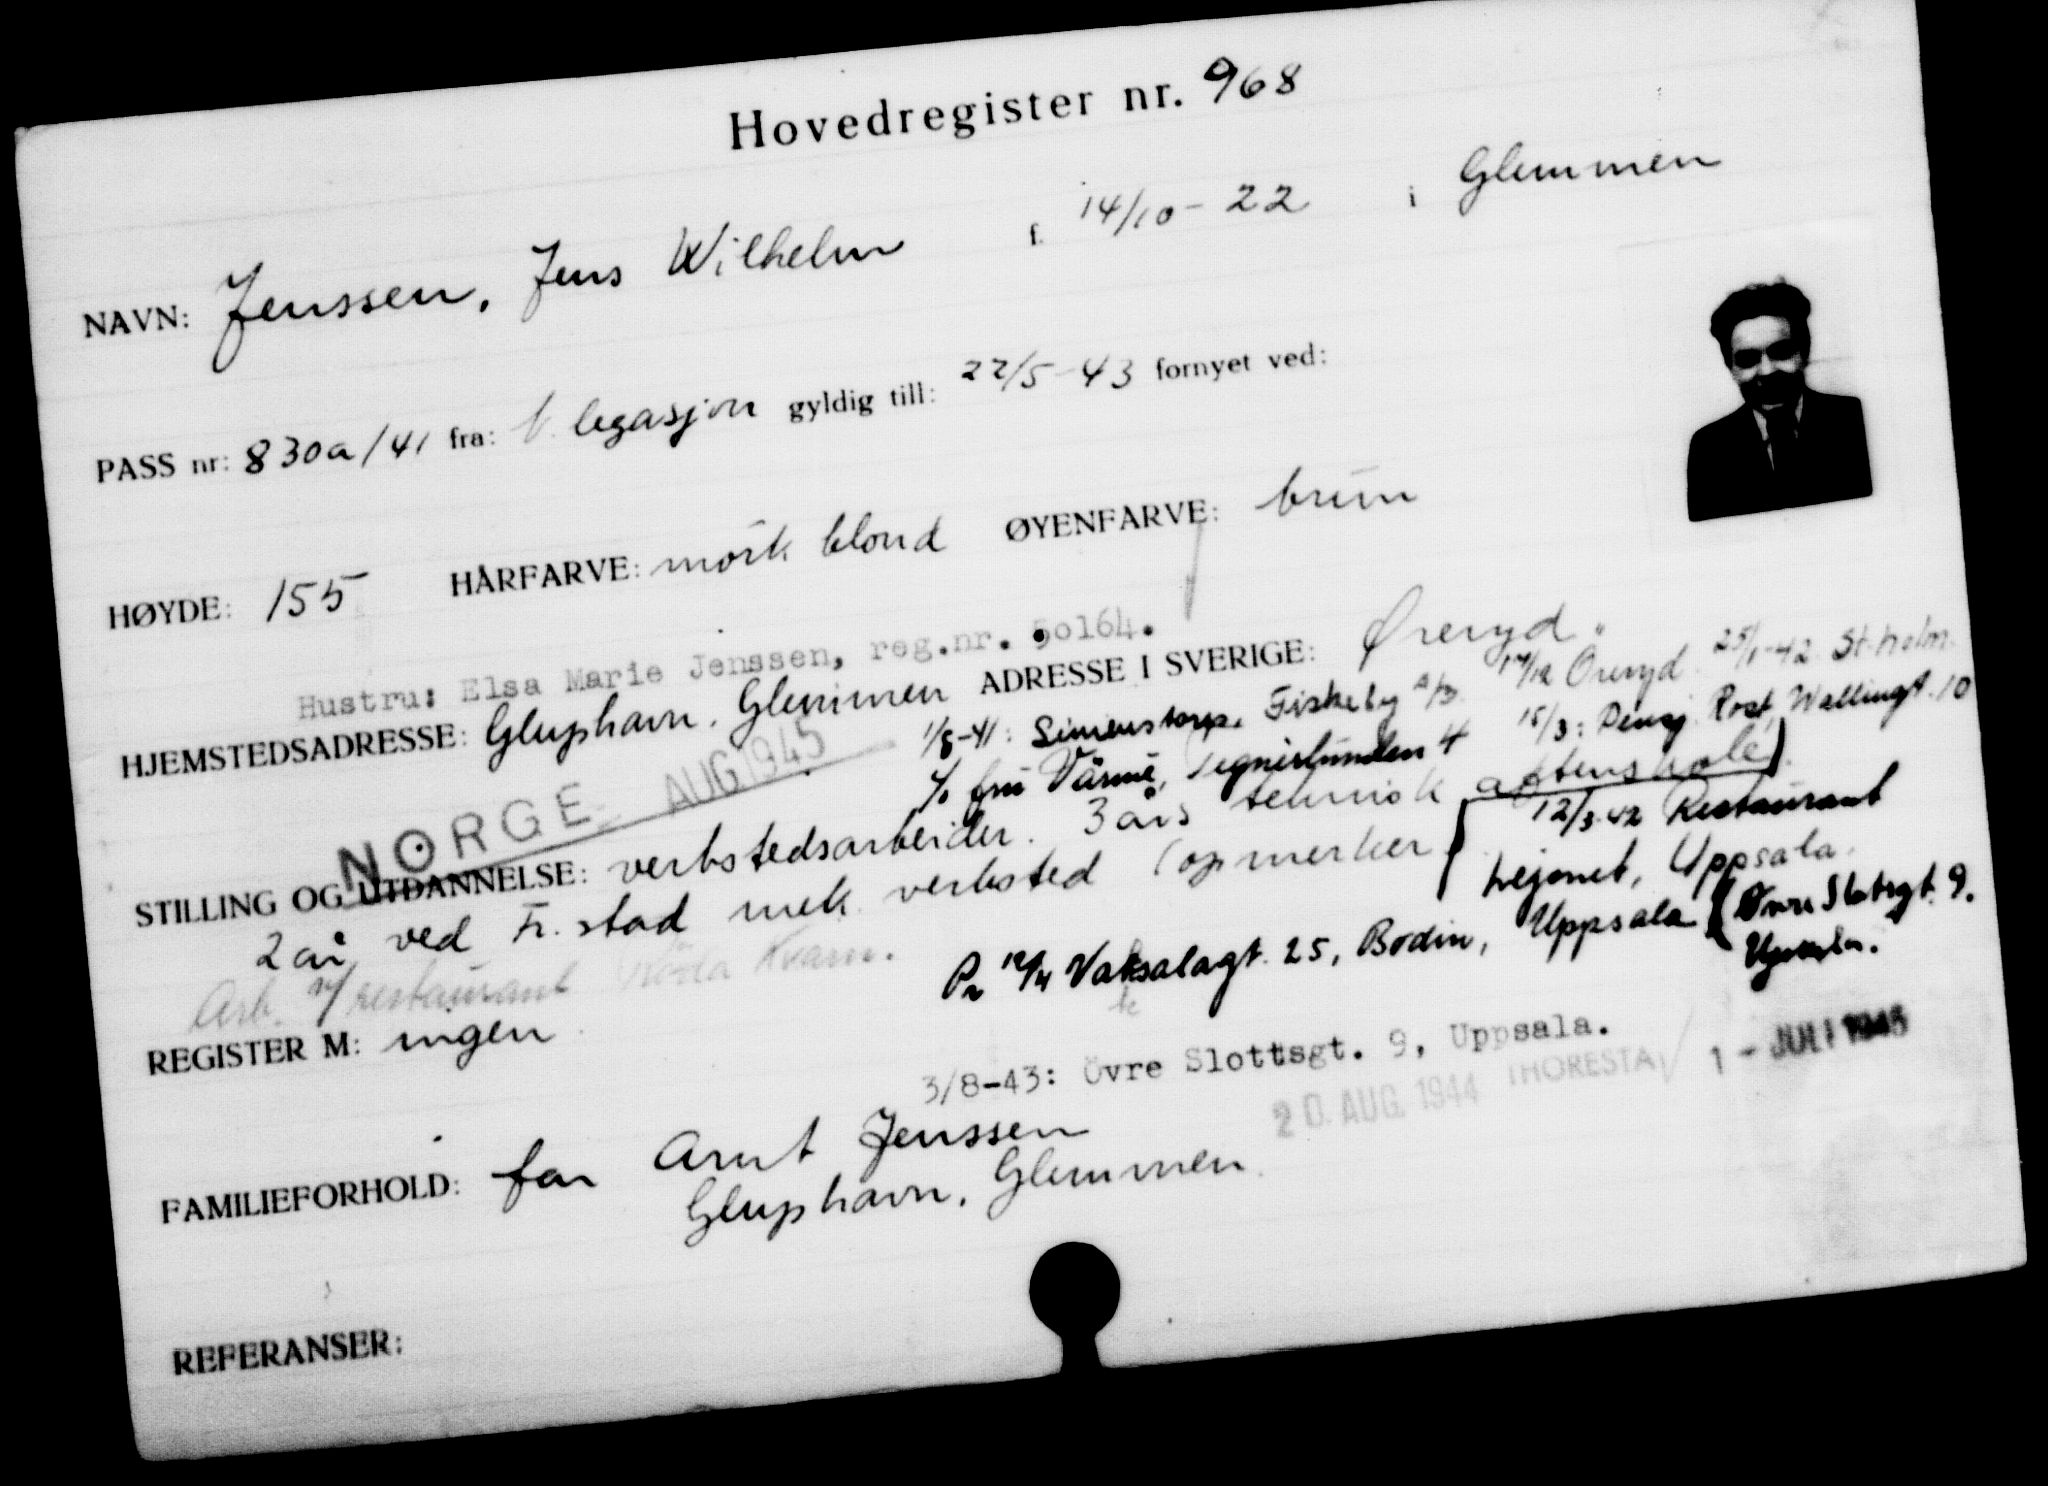 Hovedregister nr. 968
NAVN: Jenssen, Jens Wilhelm f. 14/10-22 i Glemmen
PASS nr: 830a/41 fra: N. legasjon gyldig till: 22/5-43 fornyet ved:
HØYDE: 155 HÅRFARVE: mörk blond ØYENFARVE: brun
Hustru: Elsa Marie Jenssen, reg.nr. 50164.
HJEMSTEDSADRESSE: Gluphavn, Glemmen ADRESSE I SVERIGE: Øreryd.
17/12 Öreryd 25/1-42 St.holm
1/8-41: Simonstorp. Fiskeby 15/3: Pensj. Post, Wallingt. 10
c/o fru Värme, Tegnérlunden 4
NORGE AUG 1945
STILLING OG UTDANNELSE: verkstedsarbeider. 3 års teknisk aftenskole)
2 år ved Fr.stad mek. verksted (opmerker
12/3-42 Restaurant
Lejonet, Uppsala.
Arb. v/ restaurant Röda Kvarn.
Pr 12/4 Vaksalagt. 25, Bodin, Uppsala (Övre Slotsgt. 9.
Uppsala.
REGISTER M: ingen
3/8-43: Övre Slottsgt. 9, Uppsala.
20. AUG. 1944 THORESTA / 1 - JULI 1945
FAMILIEFORHOLD: far Arnt Jenssen
Gluphavn, Glemmen.
REFERANSER: